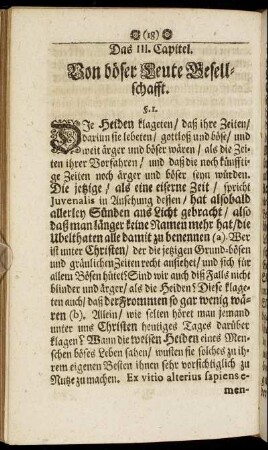 (18)
Das III. Capitel.
Von böser Leute Gesell-
schafft.
§. 1.
DIe Heiden klageten/ daß ihre Zeiten/
darinn sie lebeten/ gottloß und böse/ und
weit ärger und böser wären/ als die Zei-
ten ihrer Vorfahren/ und daß die noch künffti-
ge Zeiten noch ärger und böser seyn würden.
Die jetzige/ als eine eiserne Zeit/ spricht
Juvenalis in Ansehung dessen/ hat alsobald
allerley Sünden ans Licht gebracht/ also
daß man länger keine Namen mehr hat/ die
Ubelthaten alle damit zu benennen (a). Wer
ist unter Christen/ der die jetzigen Grund-bösen
und gräulichen Zeiten recht ansiehet/ und sich für
allem Bösen hütet? Sind wir auch diß Falls nicht
blinder und ärger/ als die Heiden? Diese klage-
ten auch/ daß der Frommen so gar wenig wä-
ren (b). Allein/ wie selten höret man jemand
unter uns Christen heutiges Tages darüber
klagen? Wann die weisen Heiden eines Men-
schen böses Leben sahen/ wusten sie solches zu ih-
rem eigenen Besten ihnen sehr vorsichtiglich zu
Nutze zu machen. Ex vitio alterius sapiens e-
men-